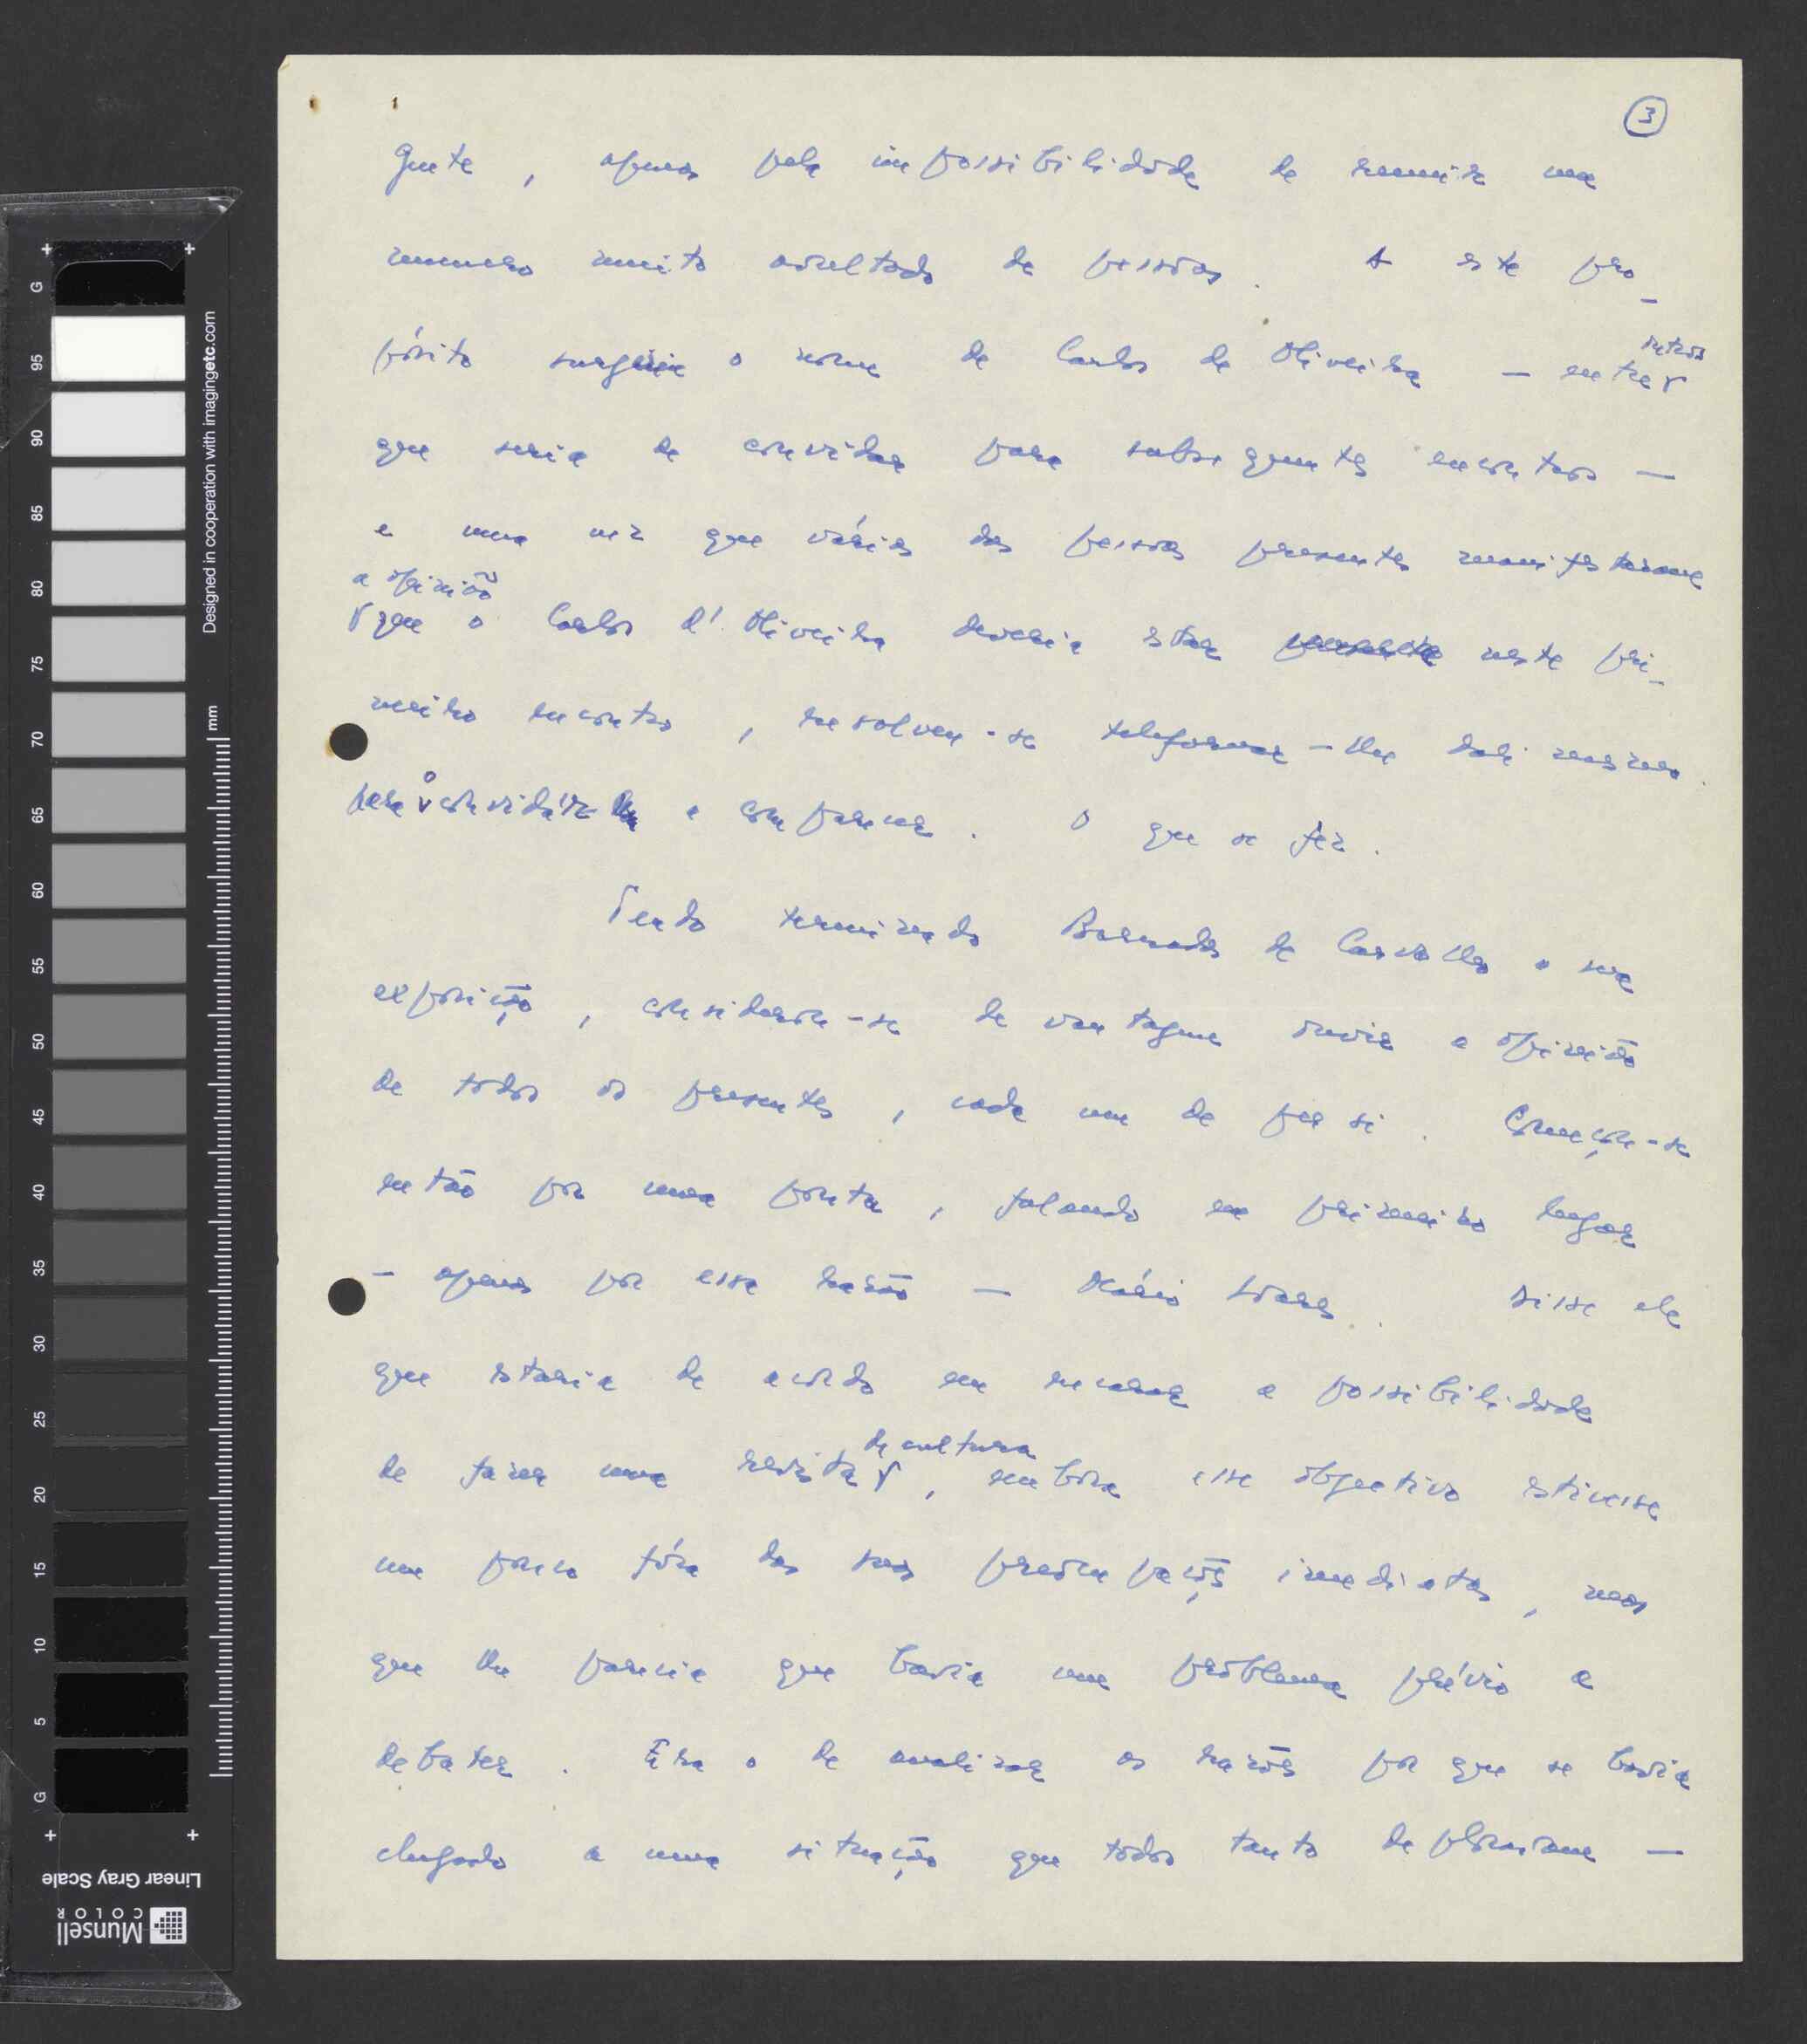 3
gente, apenas pela impossibilidade de reunir um
número muito avultado de pessoas. A este pro-
pósito surgiu o nome de Carlos de Oliveira — entre outros
que seria de convidar para subsequentes encontros —
e uma vez que várias das pessoas presentes manifestaram
a opinião
que o Carlos d'Oliveira deveria estar presente neste pri-
meiro encontro, resolveu-se telefonar-lhe dali mesmo
para o convidar a comparecer. O que se fez.
Tendo terminado Bernardes de Carvalho a sua
exposição, considerou-se de vantagem ouvir a opinião
de todos os presentes, cada um de per si. Começou-se
então por uma ponta, falando em primeiro lugar
— apenas por essa razão — Mário Soares. Disse ele
que estaria de acordo em encarar a possibilidade
de fazer uma revista de cultura, embora esse objectivo estivesse
um pouco fóra das suas preocupações imediatas, mas
que lhe parecia que havia um problema prévio a
debater. Era o de analisar as razões por que se havia
chegado a uma situação que todos tanto deploravam —
G
95
90
85
80
75
70
65
60
55
50
45
40
35
30
25
20
15
10
5
G
mm
Designed in cooperation with imagingetc.com
Linear Gray Scale
Munsell
COLOR